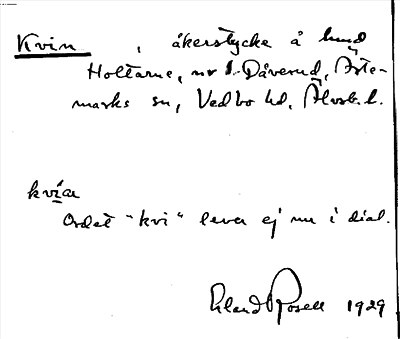 Kvin, åkerstycke å hmd
Holtarne, nr 1 Dåverud, Årte-
marks sn, Vedbo hd, Älvsb. l.
kvíar
Ordet "kvi" lever ej nu i dial.
Erland Rosell 1929